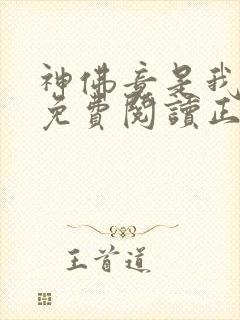 神佛竟是我
免費閱讀正
王首道